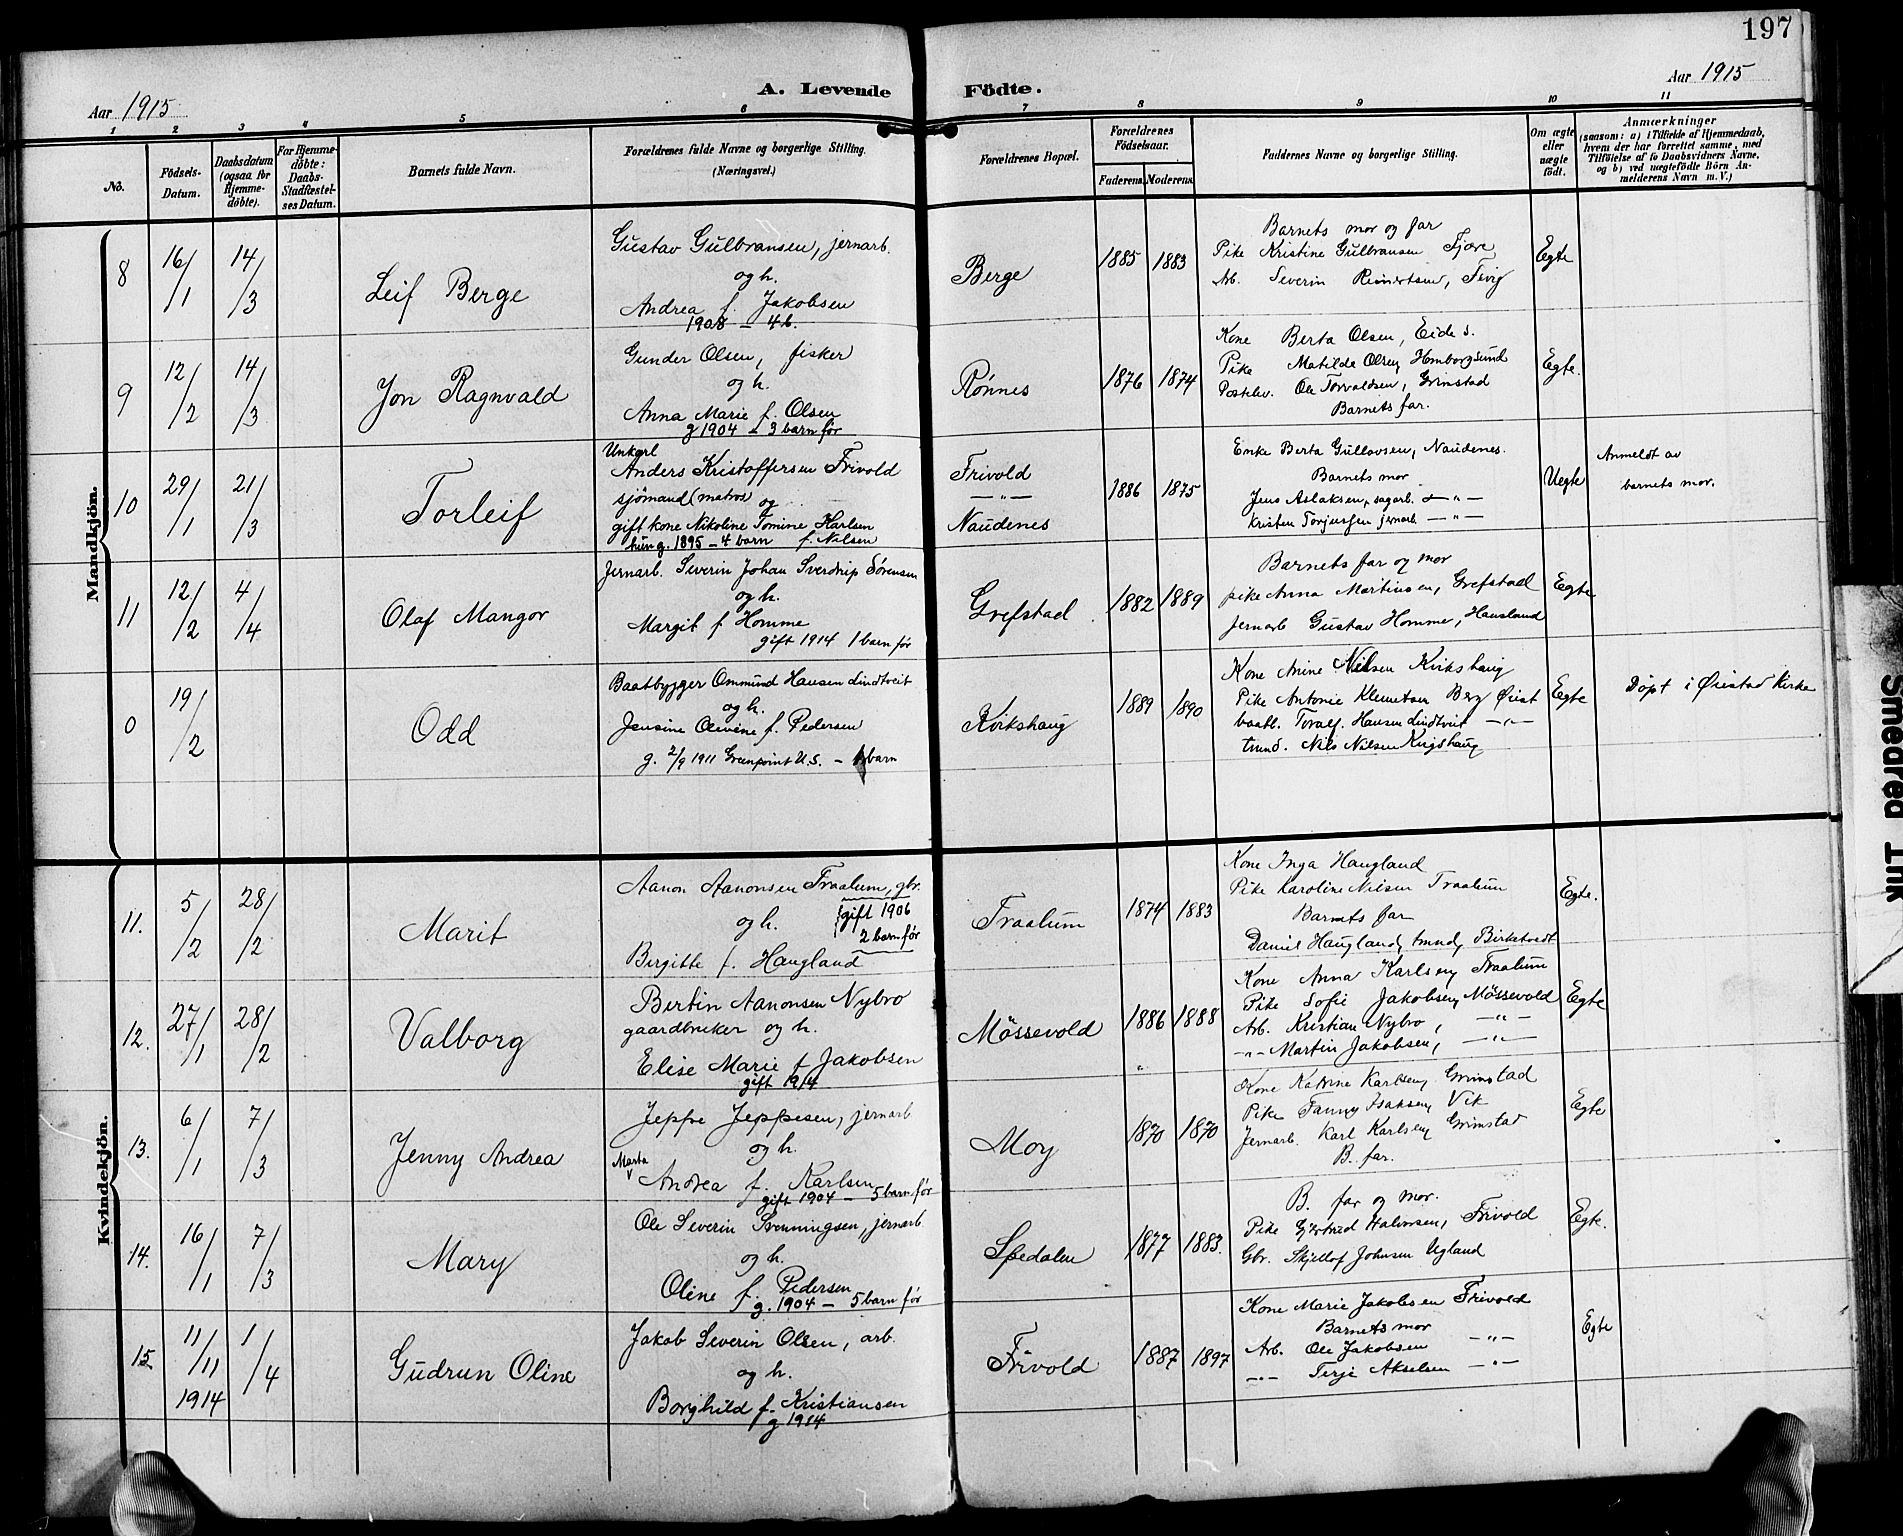 197
Aar 1915
A. Levende Födte.
Aar 1915
1 2 3 4 5 6 7 8 9 10 11
No.
Födsels-
Datum.
Daabsdatum
(ogsaa for
Hjemme-
döbte).
For Hjemme-
döbte:
Daabs-
Stadfæstel-
ses Datum.
Barnets fulde Navn.
Forældrenes fulde Navne og borgerlige Stilling.
(Næringsvei.)
Forældrenes Bopæl.
Forældrenes
Födselsaar.
Faderens. Moderens.
Faddernes Navne og borgerlige Stilling.
Om ægte
eller
uægte
födt.
Anmærkninger
(saasom: a) i Tilfælde af Hjemmedaab,
hvem der har forrettet samme, med
Tilföielse af to Daabsvidners Navne,
og b) ved uægtefödte Börn An-
melderens Navn m. V.)
Mandkjön.
8
16/1
14/3
Leif Berge
Gustav Gulbransen, jernarb.
og h.
Andrea f. Jakobsen
1908 – 4 b.
Berge
1885
1883
Barnets mor og far
Pike Kristine Gulbransen Fjære
Arb. Severin Reinertsen, Fevig
Egte
9
12/2
14/3
Jon Ragnvald
Gunder Olsen, fisker
og h.
Anna Marie f. Olsen
g 1904 – 3 barn før
Rønnes
1876
1874
Kone Berta Olsen, Eide s.
Pike Matilde Olsen, Homborgsund
Postelev. Ole Torvaldsen, Grimstad
Barnets far.
Egte.
10
29/1
21/3
Torleif
Unkarl
Anders Kristoffersen Frivold
sjömand (matros) og
gift kone Nikoline Tomine Karlsen
hun g. 1895 – 4 barn f. Nilsen
Frivold
— " —
Naudenes
1886
1875
Enke Berta Gullovsen, Naudenes.
Barnets mor
Jens Aslaksen, sagarb. — " —
Kristen Torjussen jernarb — " —
Uegte
Anmeldt av
barnets mor.
11
12/2
4/4
Olaf Mangor
Jernarb. Severin Johan Sverdrup Sørensen
og h.
Margit f Homme
gift 1914 1 barn før
Grefstad
1882
1889
Barnets far og mor
pike Anna Martinsen, Grefstad
Jernarb Gustav Homme, Hausland
Egte
0
19/2
Odd
Baatbygger Ommund Hansen Lindtveit
og h.
Jensine Olivine f. Pedersen
g. 2/9 1911 Greenpoint U.S. – barn
Kirkshaug
1889
1890
Kone Anine Nilsen Kirkshaug
Pike Antonie Klemetsen Berg Øiest
baatb. Toralf Hansen Lindtveit — " —
tmnd. Nils Nilsen Kirgshaug
Egte
Döpt i Øiestad Kirke
Kvindekjön.
11.
5/2
28/2
Marit
Aanon Aanonsen Traalum, gbr.
og h.
gift 1906
2 barn før
Birgitte f. Haugland
Traalum
1874
1883
Kone Inga Haugland
Pike Karoline Nilsen Traalum
Barnets far
Daniel Haugland, tmnd, Birketvedt
Egte.
12.
27/1
28/2
Valborg
Bertin Aanonsen Nybro
gaardbruker og h.
Elise Marie f Jakobsen
gift 1914
Mössevold
1886
1888
Kone Anna Karlsen, Traalum
Pike Sofie Jakobsen, Mössevold
Arb. Kristian Nybro, — " —
— " — Martin Jakobsen, — " —
Egte
13.
6/1
7/3
Jenny Andrea
Jeppe Jeppesen, jernarb
og h.
Marta
Andrea f. Karlsen
gift 1904 – 5 barn før
Moy
1870
1870
Kone Katrine Karlsen, Grimstad
Pike Fanny Isaksen, Vik
Jernarb. Karl Karlsen, Grimstad
B. far.
Egte
14.
16/1
7/3
Mary
Ole Severin Svenningsen, jernarb.
og h.
Oline f. Pedersen
g. 1904 – 5 barn før
Spedalen
1877
1883.
B. far og mor.
Pike Gjertrud Halvorsen, Frivold
Gbr. Skjellof Johnsen Ugland
Egte.
15.
11/11
1914
1/4
Gudrun Oline
Jakob Severin Olsen, arb.
og h.
Borghild f. Kristiansen
g 1914
Frivold
1887
1897
Kone Marie Jakobsen Frivold
Barnets mor
Arb. Ole Jakobsen — " —
— " — Terje Akselsen — " —
Egte
Smeared Ink